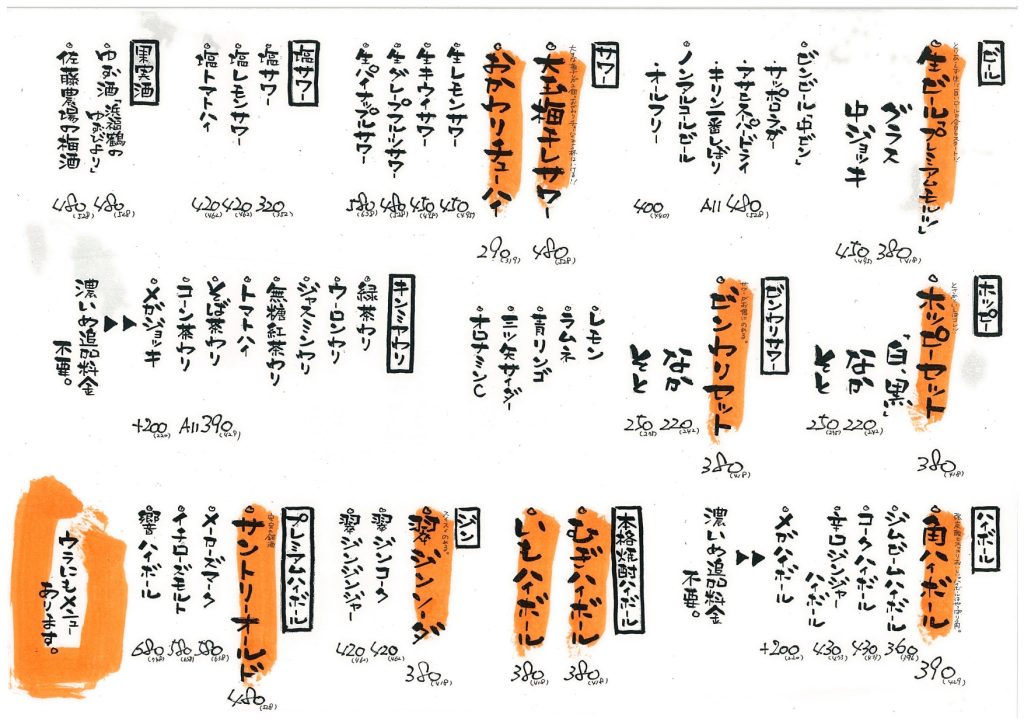 ビール
生ビール「プレミアムモルツ」
380(418)
グラス
中ジョッキ
450(495)
ビンビール「中ビン」
・サッポロラガー
480(528)
・アサヒスーパードライ
All
・キリン一番しぼり
ノンアルコールビール
400(440)
・オールフリー
サワー
大生梅干しサワー
480(528)
おかわりチューハイ
290(319)
生レモンサワー
450(495)
生キウイサワー
450(495)
生グレープフルーツサワー
480(528)
生パイナップルサワー
580(638)
塩サワー
塩サワー
320(352)
塩レモンサワー
420(462)
塩トマトハイ
420(462)
果実酒
ゆず酒「浜福鶴の
ゆずびより」
480(528)
佐藤農場の梅酒
480(528)
ホッピー
ホッピーセット
380(418)
「白、黒」
なか
220(242)
そと
250(275)
ビンワリサワー
ビンワリセット
380(418)
なか
220(242)
そと
250(275)
・レモン
・ラムネ
・青リンゴ
・三ツ矢サイダー
・オロナミンC
キンミヤワリ
緑茶ワリ
ウーロンワリ
ジャスミンワリ
無糖紅茶ワリ
トマトハイ
そば茶ワリ
コーン茶ワリ
All 390(429)
メガジョッキ
+200(220)
濃いめ追加料金
不要。
ハイボール
角ハイボール
390(429)
ジムビームハイボール
360(396)
コークハイボール
430(473)
辛口ジンジャー
ハイボール
430(473)
メガハイボール
+200(220)
濃いめ追加料金
不要。
本格焼酎ハイボール
むぎハイボール
380(418)
いもハイボール
380(418)
ジン
翠ジンソーダ
380(418)
翠ジンコーク
420(462)
翠ジンジンジャー
420(462)
プレミアムハイボール
サントリーオールド
480(528)
メーカーズマーク
580(638)
イチローズモルト
580(638)
響ハイボール
680(748)
ウラにもメニュー
あります。